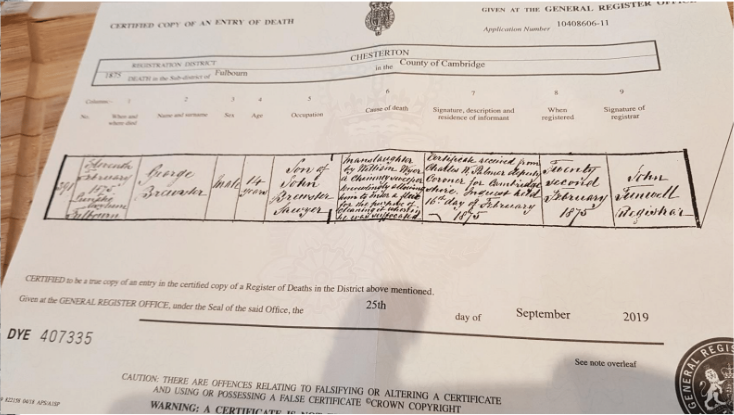 CERTIFIED COPY OF AN ENTRY OF DEATH
GIVEN AT THE GENERAL REGISTER OFFICE
Application Number 10408606-11
REGISTRATION DISTRICT
CHESTERTON
1875 DEATH in the Sub-district of Fulbourn in the County of Cambridge
Columns:- 1 2 3 4 5 6 7 8 9
No. When and where died Name and surname Sex Age Occupation Cause of death Signature, description and residence of informant When registered Signature of registrar
291
Eleventh
February
1875
Lunatic
Asylum
Fulbourn
George
Brewster
Male
14
years
Son of
John
Brewster
Sawyer
Manslaughter
by William Wyer
a Chimney sweeper
knowingly allowing
him to enter a flue
for the purpose of
cleaning it whereby
he was suffocated
Certificate received from
Charles W. Palmer deputy
Coroner for Cambridge
shire. Inquest held
16th day of February
1875
Twenty
second
February
1875
John
Registrar
CERTIFIED to be a true copy of an entry in the certified copy of a Register of Deaths in the District above mentioned.
Given at the GENERAL REGISTER OFFICE, under the Seal of the said Office, the 25th day of September 2019
DYE 407335
See note overleaf
CAUTION: THERE ARE OFFENCES RELATING TO FALSIFYING OR ALTERING A CERTIFICATE
AND USING OR POSSESSING A FALSE CERTIFICATE ©CROWN COPYRIGHT
WARNING: A CERTIFICATE IS NOT
GENERAL REGIS